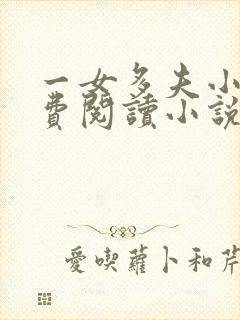 一女多夫小
費閱讀小說
愛喫蘿卜和芹